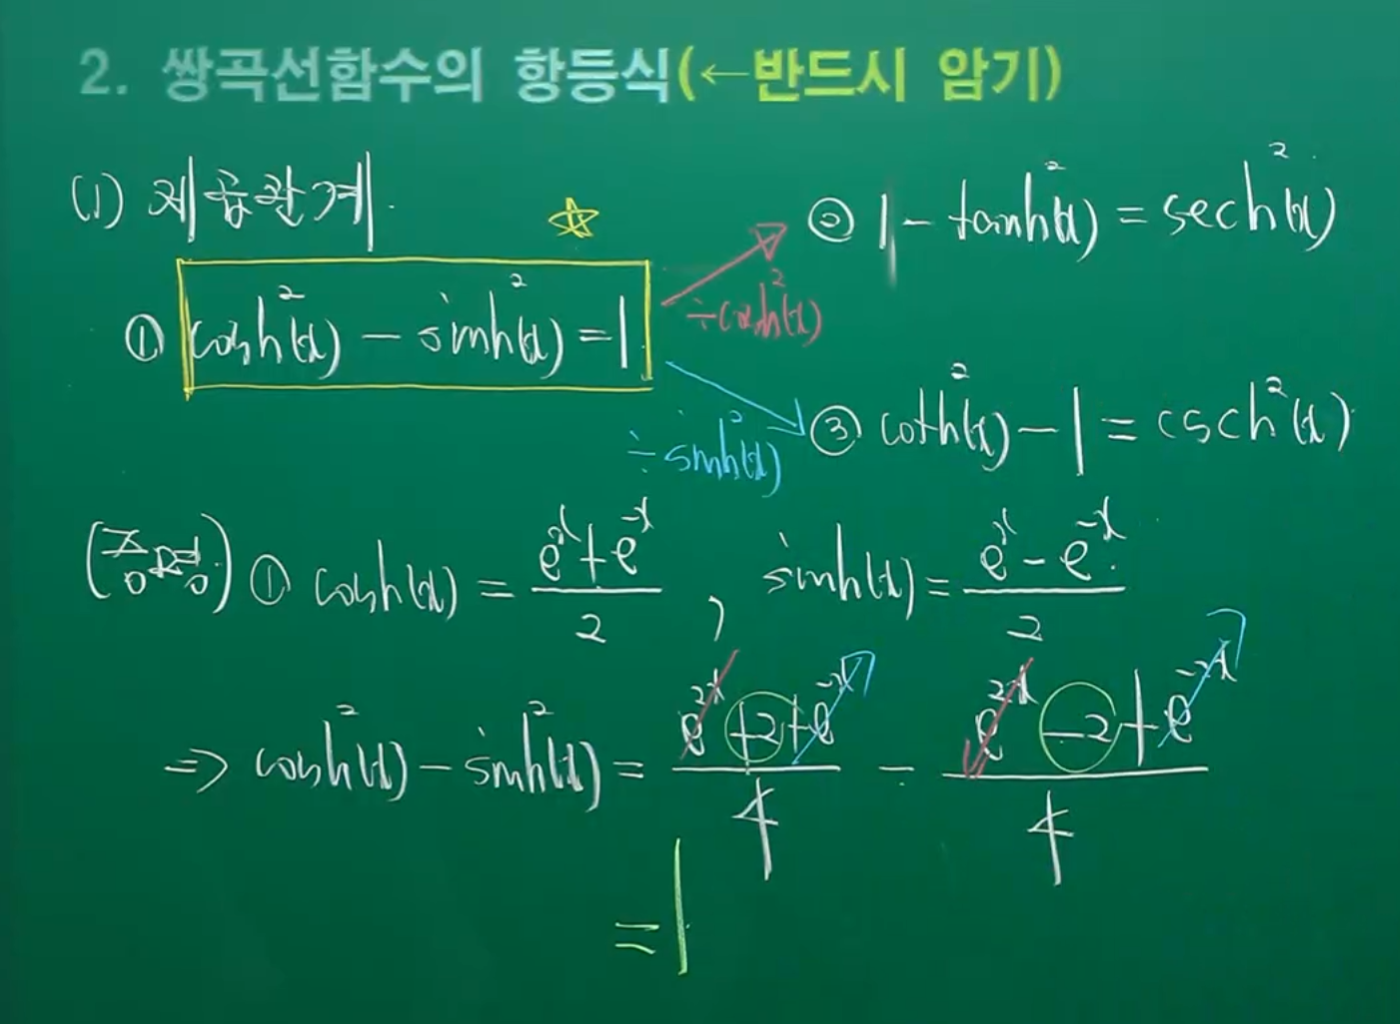 2. 쌍곡선함수의 항등식(←반드시 암기)
(1) 제곱관계.
① cosh²(x) - sinh²(x) = 1
÷cosh²(x)
② 1 - tanh²(x) = sech²(x)
÷sinh²(x)
③ coth²(x) - 1 = csch²(x)
(증명) ① cosh(x) = (eˣ + e⁻ˣ)/2 , sinh(x) = (eˣ - e⁻ˣ)/2
⇒ cosh²(x) - sinh²(x) = (e²ˣ + 2 + e⁻²ˣ)/4 - (e²ˣ - 2 + e⁻²ˣ)/4
= 1